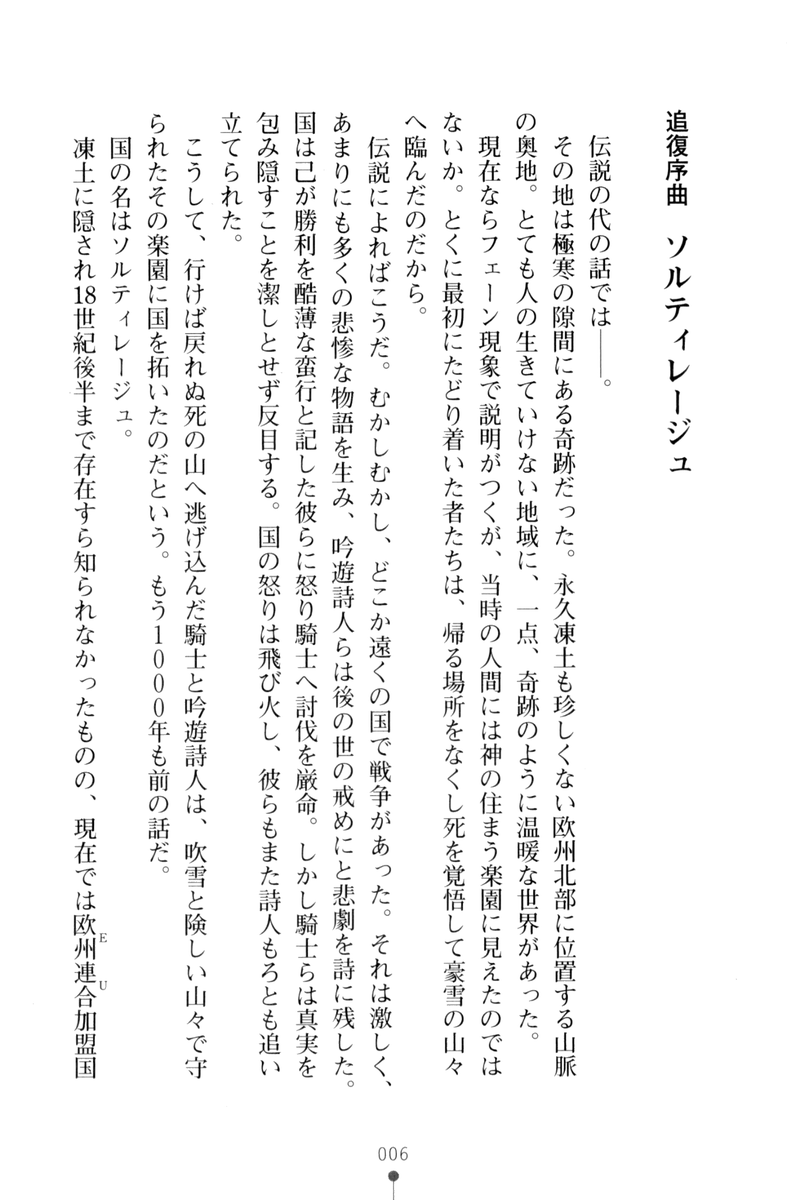 追復序曲　ソルティレージュ
　伝説の代の話では――。
　その地は極寒の隙間にある奇跡だった。永久凍土も珍しくない欧州北部に位置する山脈
の奥地。とても人の生きていけない地域に、一点、奇跡のように温暖な世界があった。
　現在ならフェーン現象で説明がつくが、当時の人間には神の住まう楽園に見えたのでは
ないか。とくに最初にたどり着いた者たちは、帰る場所をなくし死を覚悟して豪雪の山々
へ臨んだのだから。
　伝説によればこうだ。むかしむかし、どこか遠くの国で戦争があった。それは激しく、
あまりにも多くの悲惨な物語を生み、吟遊詩人らは後の世の戒めにと悲劇を詩に残した。
国は己が勝利を酷薄な蛮行と記した彼らに怒り騎士へ討伐を厳命。しかし騎士らは真実を
包み隠すことを潔しとせず反目する。国の怒りは飛び火し、彼らもまた詩人もろとも追い
立てられた。
　こうして、行けば戻れぬ死の山へ逃げ込んだ騎士と吟遊詩人は、吹雪と険しい山々で守
られたその楽園に国を拓いたのだという。もう１０００年も前の話だ。
　国の名はソルティレージュ。
　凍土に隠され18世紀後半まで存在すら知られなかったものの、現在では欧州連合加盟国
ＥＵ
006